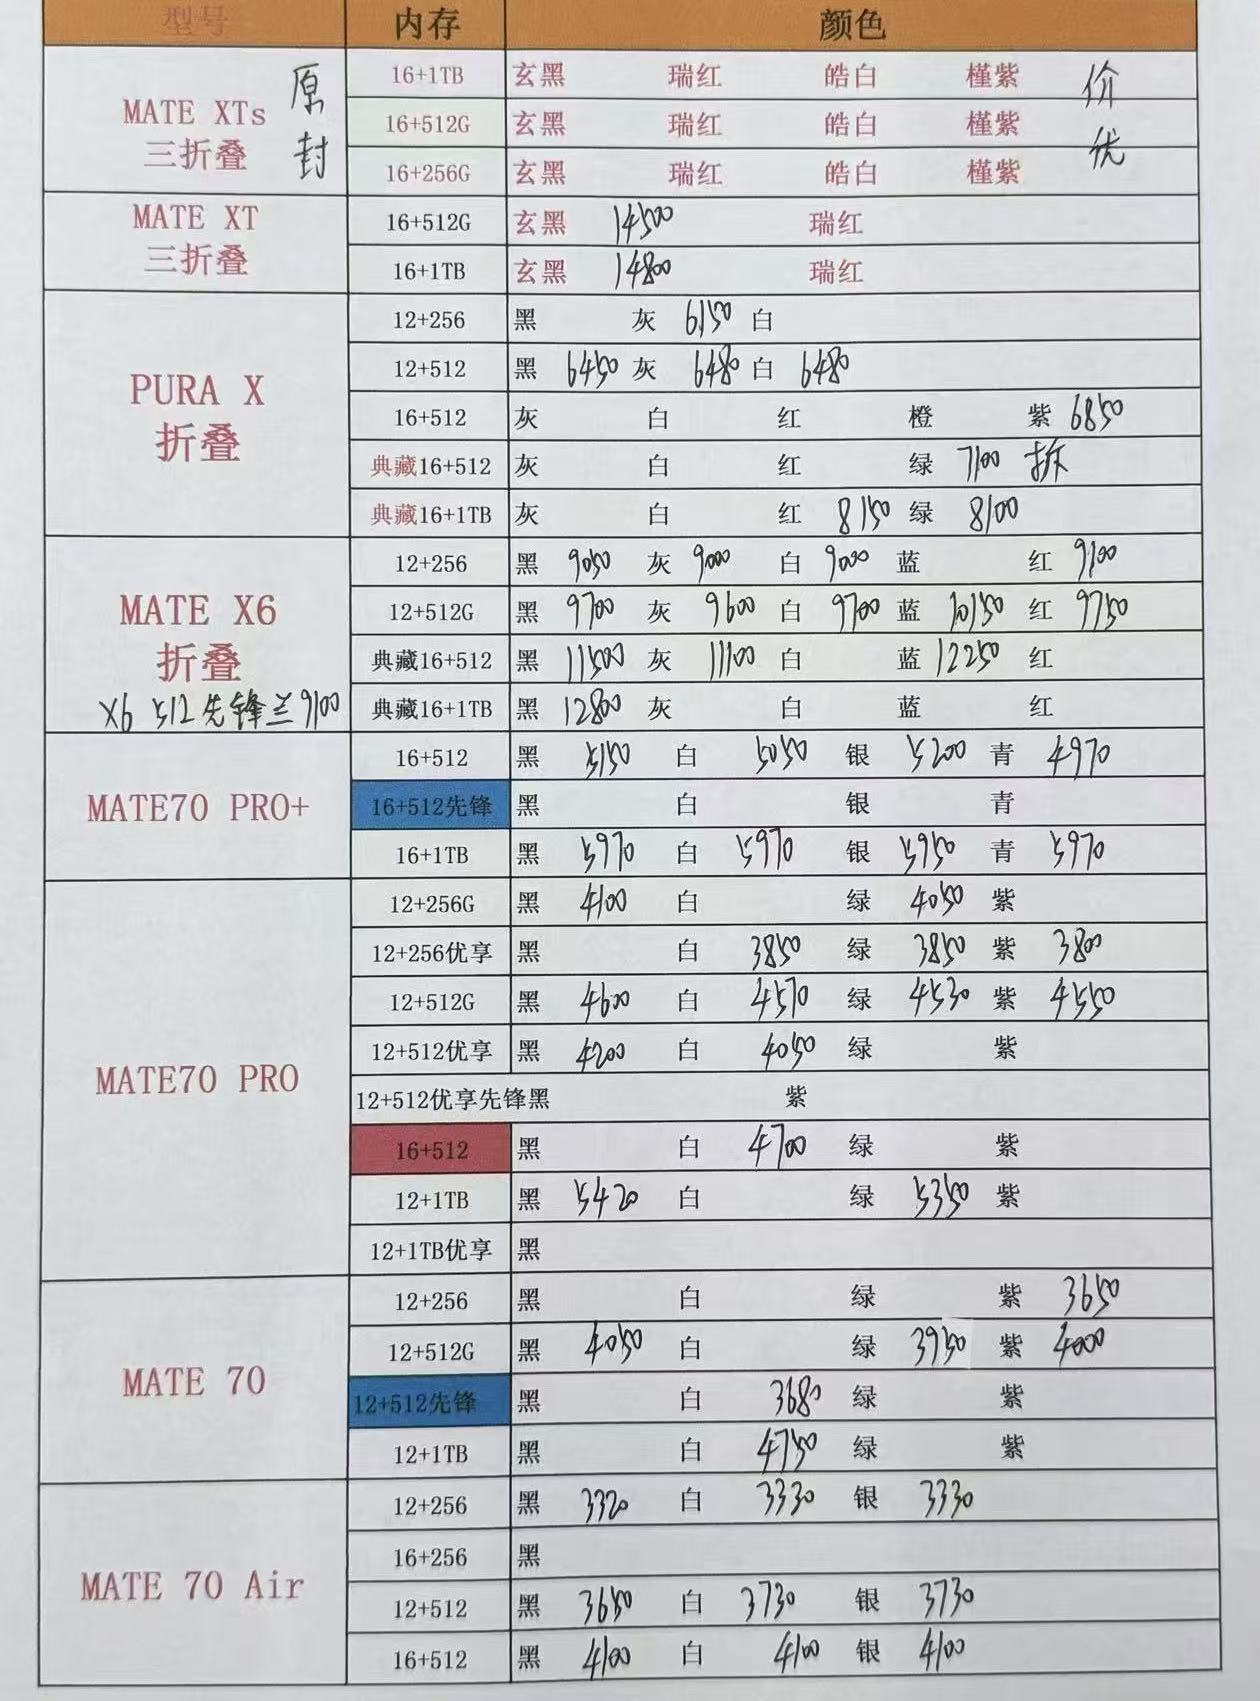 型号 内存 颜色
MATE XTs 三折叠 原封
16+1TB 玄黑 瑞红 皓白 槿紫 价优
16+512G 玄黑 瑞红 皓白 槿紫
16+256G 玄黑 瑞红 皓白 槿紫
MATE XT 三折叠
16+512G 玄黑 14500 瑞红
16+1TB 玄黑 14800 瑞红
PURA X 折叠
12+256 黑 灰 6150 白
12+512 黑 6450 灰 6480 白 6480
16+512 灰 白 红 橙 紫 6850
典藏16+512 灰 白 红 绿 7100 拆
典藏16+1TB 灰 白 红 8150 绿 8100
MATE X6 折叠
X6 512先锋兰9100
12+256 黑 9050 灰 9000 白 9000 蓝 红 9100
12+512G 黑 9700 灰 9600 白 9700 蓝 10150 红 9750
典藏16+512 黑 11500 灰 11100 白 蓝 12250 红
典藏16+1TB 黑 12800 灰 白 蓝 红
MATE70 PRO+
16+512 黑 5150 白 5050 银 5200 青 4970
16+512先锋 黑 白 银 青
16+1TB 黑 5970 白 5970 银 5950 青 5970
MATE70 PRO
12+256G 黑 4100 白 绿 4050 紫
12+256优享 黑 白 3850 绿 3850 紫 3800
12+512G 黑 4600 白 4570 绿 4530 紫 4550
12+512优享 黑 4200 白 4050 绿 紫
12+512优享先锋黑 紫
16+512 黑 白 4700 绿 紫
12+1TB 黑 5420 白 绿 5350 紫
12+1TB优享 黑
MATE 70
12+256 黑 白 绿 紫 3650
12+512G 黑 4050 白 绿 3950 紫 4000
12+512先锋 黑 白 3680 绿 紫
12+1TB 黑 白 4750 绿 紫
MATE 70 Air
12+256 黑 3320 白 3330 银 3330
16+256 黑
12+512 黑 3650 白 3730 银 3730
16+512 黑 4100 白 4100 银 4100